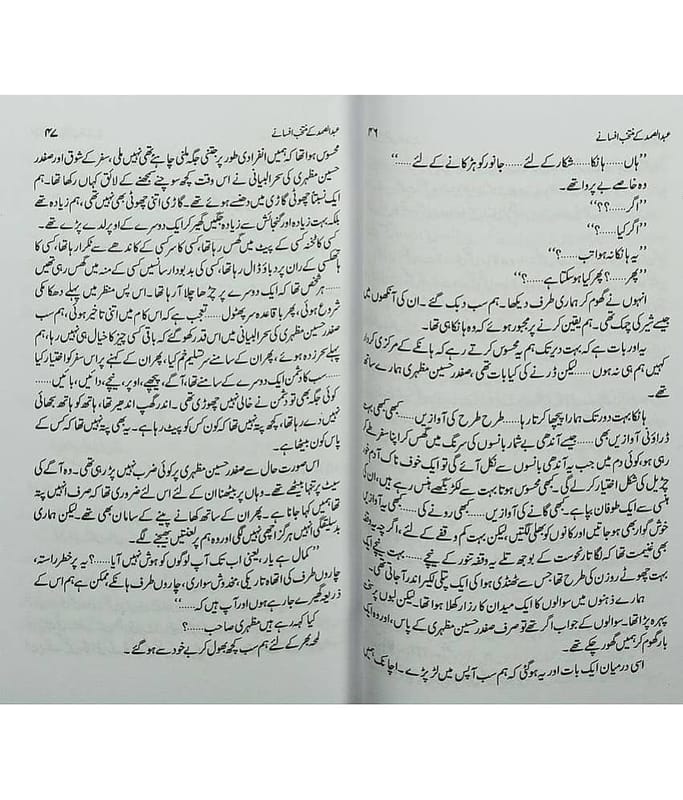 عبدالصمد کے منتخب افسانے ۴۶
”ہاں ہانکا …… شکار کے لئے …… جانور کو ہڑکانے کے لئے ……“
وہ خاصے بے پرواتھے۔
”اگر……؟؟“
”اگر کیا……؟“
”یہ ہانکا نہ ہوا تب……؟“
”پھر……؟ پھر کیا ہوسکتا ہے……؟“
انہوں نے گھوم کر ہماری طرف دیکھا۔ ہم سب دبک گئے۔ ان کی آنکھوں میں
جیسے شیر کی چمک تھی۔ ہم یقین کرنے پر مجبور ہوئے کہ وہ ہانکا ہی تھا۔
یہ اور بات ہے کہ بہت دیر تک ہم یہ محسوس کرتے رہے کہ ہانکے کے مرکزی کردار
کہیں ہم ہی نہ ہوں …… لیکن ڈرنے کی کیا بات تھی، صفدر حسین مظہری ہمارے ساتھ
تھے۔
ہانکا بہت دور تک ہمارا پیچھا کرتا رہا …… طرح طرح کی آوازیں …… کبھی کبھی بہت
ڈراؤنی آوازیں بھی …… جیسے آندھی بے شمار بانسوں کی سرنگ میں گھس کر اپنا سفر طے کر
رہی ہو، کوئی دم میں جب یہ آندھی بانسوں سے نکل آئے گی تو ایک خوف ناک آدم خور
چڑیل کی شکل اختیار کرلے گی۔ کبھی محسوس ہوتا بہت سے لکڑبگھے ہنس رہے ہیں، ان کی
ہنسی سے ایک طوفان بپا ہے۔ کبھی گانے کی آوازیں …… کبھی رونے کی …… کبھی یہ آوازیں
خوش گوار بھی ہوجاتیں اور کانوں کو بھلی لگتیں، لیکن بہت کم وقفے کے لئے، اگرچہ یہ وقفہ
بھی غنیمت تھا کہ لگاتار نحوست کے بوجھ تلے یہ وقفہ تنور کے نیچے …… بہت نیچے ایک
بہت چھوٹے روزن کی طرح تھا جس سے ٹھنڈی ہوا کی ایک پتلی لکیر اندر آجاتی تھی۔
ہمارے ذہنوں میں سوالوں کا ایک میدان کارزار کھلا ہوا تھا۔ لیکن لبوں پر
پہرہ پڑا تھا۔ سوالوں کے جواب اگر تھے تو صرف صفدر حسین مظہری کے پاس، اور وہ ایک
بار گھوم کر ہمیں گھور چکے تھے۔
اسی درمیان ایک بات اور یہ ہوگئی کہ ہم سب آپس میں لڑ پڑے۔ اچانک ہمیں
عبدالصمد کے منتخب افسانے ۴۷
محسوس ہوا تھا کہ ہمیں انفرادی طور پر جتنی جگہ ملنی چاہئے تھی نہیں ملی، سفر کے شوق اور صفدر
حسین مظہری کی سحرالبیانی نے اس وقت کچھ سوچنے سمجھنے کے لائق کہاں رکھا تھا۔ ہم
ایک نسبتاً چھوٹی گاڑی میں دھنسے ہوئے تھے۔ گاڑی اتنی چھوٹی بھی نہیں تھی، ہم زیادہ تھے
بلکہ بہت زیادہ اور گنجائش سے زیادہ جگہیں گھیر کر ایک دوسرے کے اوپر لدے پڑے تھے۔
کسی کا گھٹنہ کسی کے پیٹ میں گھس رہا تھا، کسی کا سر کسی کے کاندھے سے ٹکرارہا تھا، کسی کا
ہاتھ کسی کے ران پر دباؤ ڈال رہا تھا، کسی کی بدبودار سانسیں کسی کے منہ میں گھس رہی تھیں
…… ہر شخص تھا کہ ایک دوسرے پر چڑھا چلا آرہا تھا۔ اس پس منظر میں پہلے دھکا مکی
شروع ہوئی، پھر باقاعدہ سر پھٹول …… تعجب ہے کہ اس کام میں اتنی تاخیر ہوئی، ہم سب
صفدر حسین مظہری کی سحرالبیانی میں اس قدر کھو گئے کہ باقی کسی چیز کا خیال ہی نہیں رہا، ہم
پہلے سحر زدہ ہوئے، پھر ان کے سامنے سر تسلیم خم کیا، پھر ان کے کہنے پر اس سفر کو اختیار کیا
…… سب کا دشمن ایک دوسرے کے سامنے تھا، آگے، پیچھے، اوپر، نیچے، دائیں، بائیں ……
کوئی جگہ بھی تو دشمن نے خالی نہیں چھوڑی تھی۔ اندر گھپ اندھیر تھا، ہاتھ کو ہاتھ سجھائی
نہیں دے رہا تھا، کچھ پتہ نہیں تھا کہ کون کس کو پیٹ رہا ہے۔ یہ بھی پتہ نہیں تھا کہ کس کے
پاس کون بیٹھا ہے۔
اس صورت حال سے صفدر حسین مظہری پر کوئی ضرب نہیں پڑ رہی تھی۔ وہ آگے کی
سیٹ پر تنہا بیٹھے تھے۔ وہاں پر بیٹھنا ان کے لئے اس لئے ضروری تھا کہ صرف انہیں پتہ
تھا ہمیں کہاں جانا ہے۔ پھر ان کے ساتھ کھانے پینے کے سامان بھی تھے۔ لیکن ہماری
بدسلیقگی انہیں ہرگز اچھی نہیں لگی اور وہ ہم پر لعنتیں بھیجنے لگے۔
”کمال ہے یار، یعنی اب تک آپ لوگوں کو ہوش نہیں آیا……؟ یہ پر خطر راستہ،
چاروں طرف کی اتھاہ تاریکی، مخدوش سواری، چاروں طرف ہانکے، ممکن ہے ہم اس کے
ذریعہ گھیرے جارہے ہوں اور آپ ہیں کہ……“
کیا کہہ رہے ہیں مظہری صاحب……؟
لمحہ بھر کے لئے ہم سب کچھ بھول کر بے خود سے ہوگئے۔